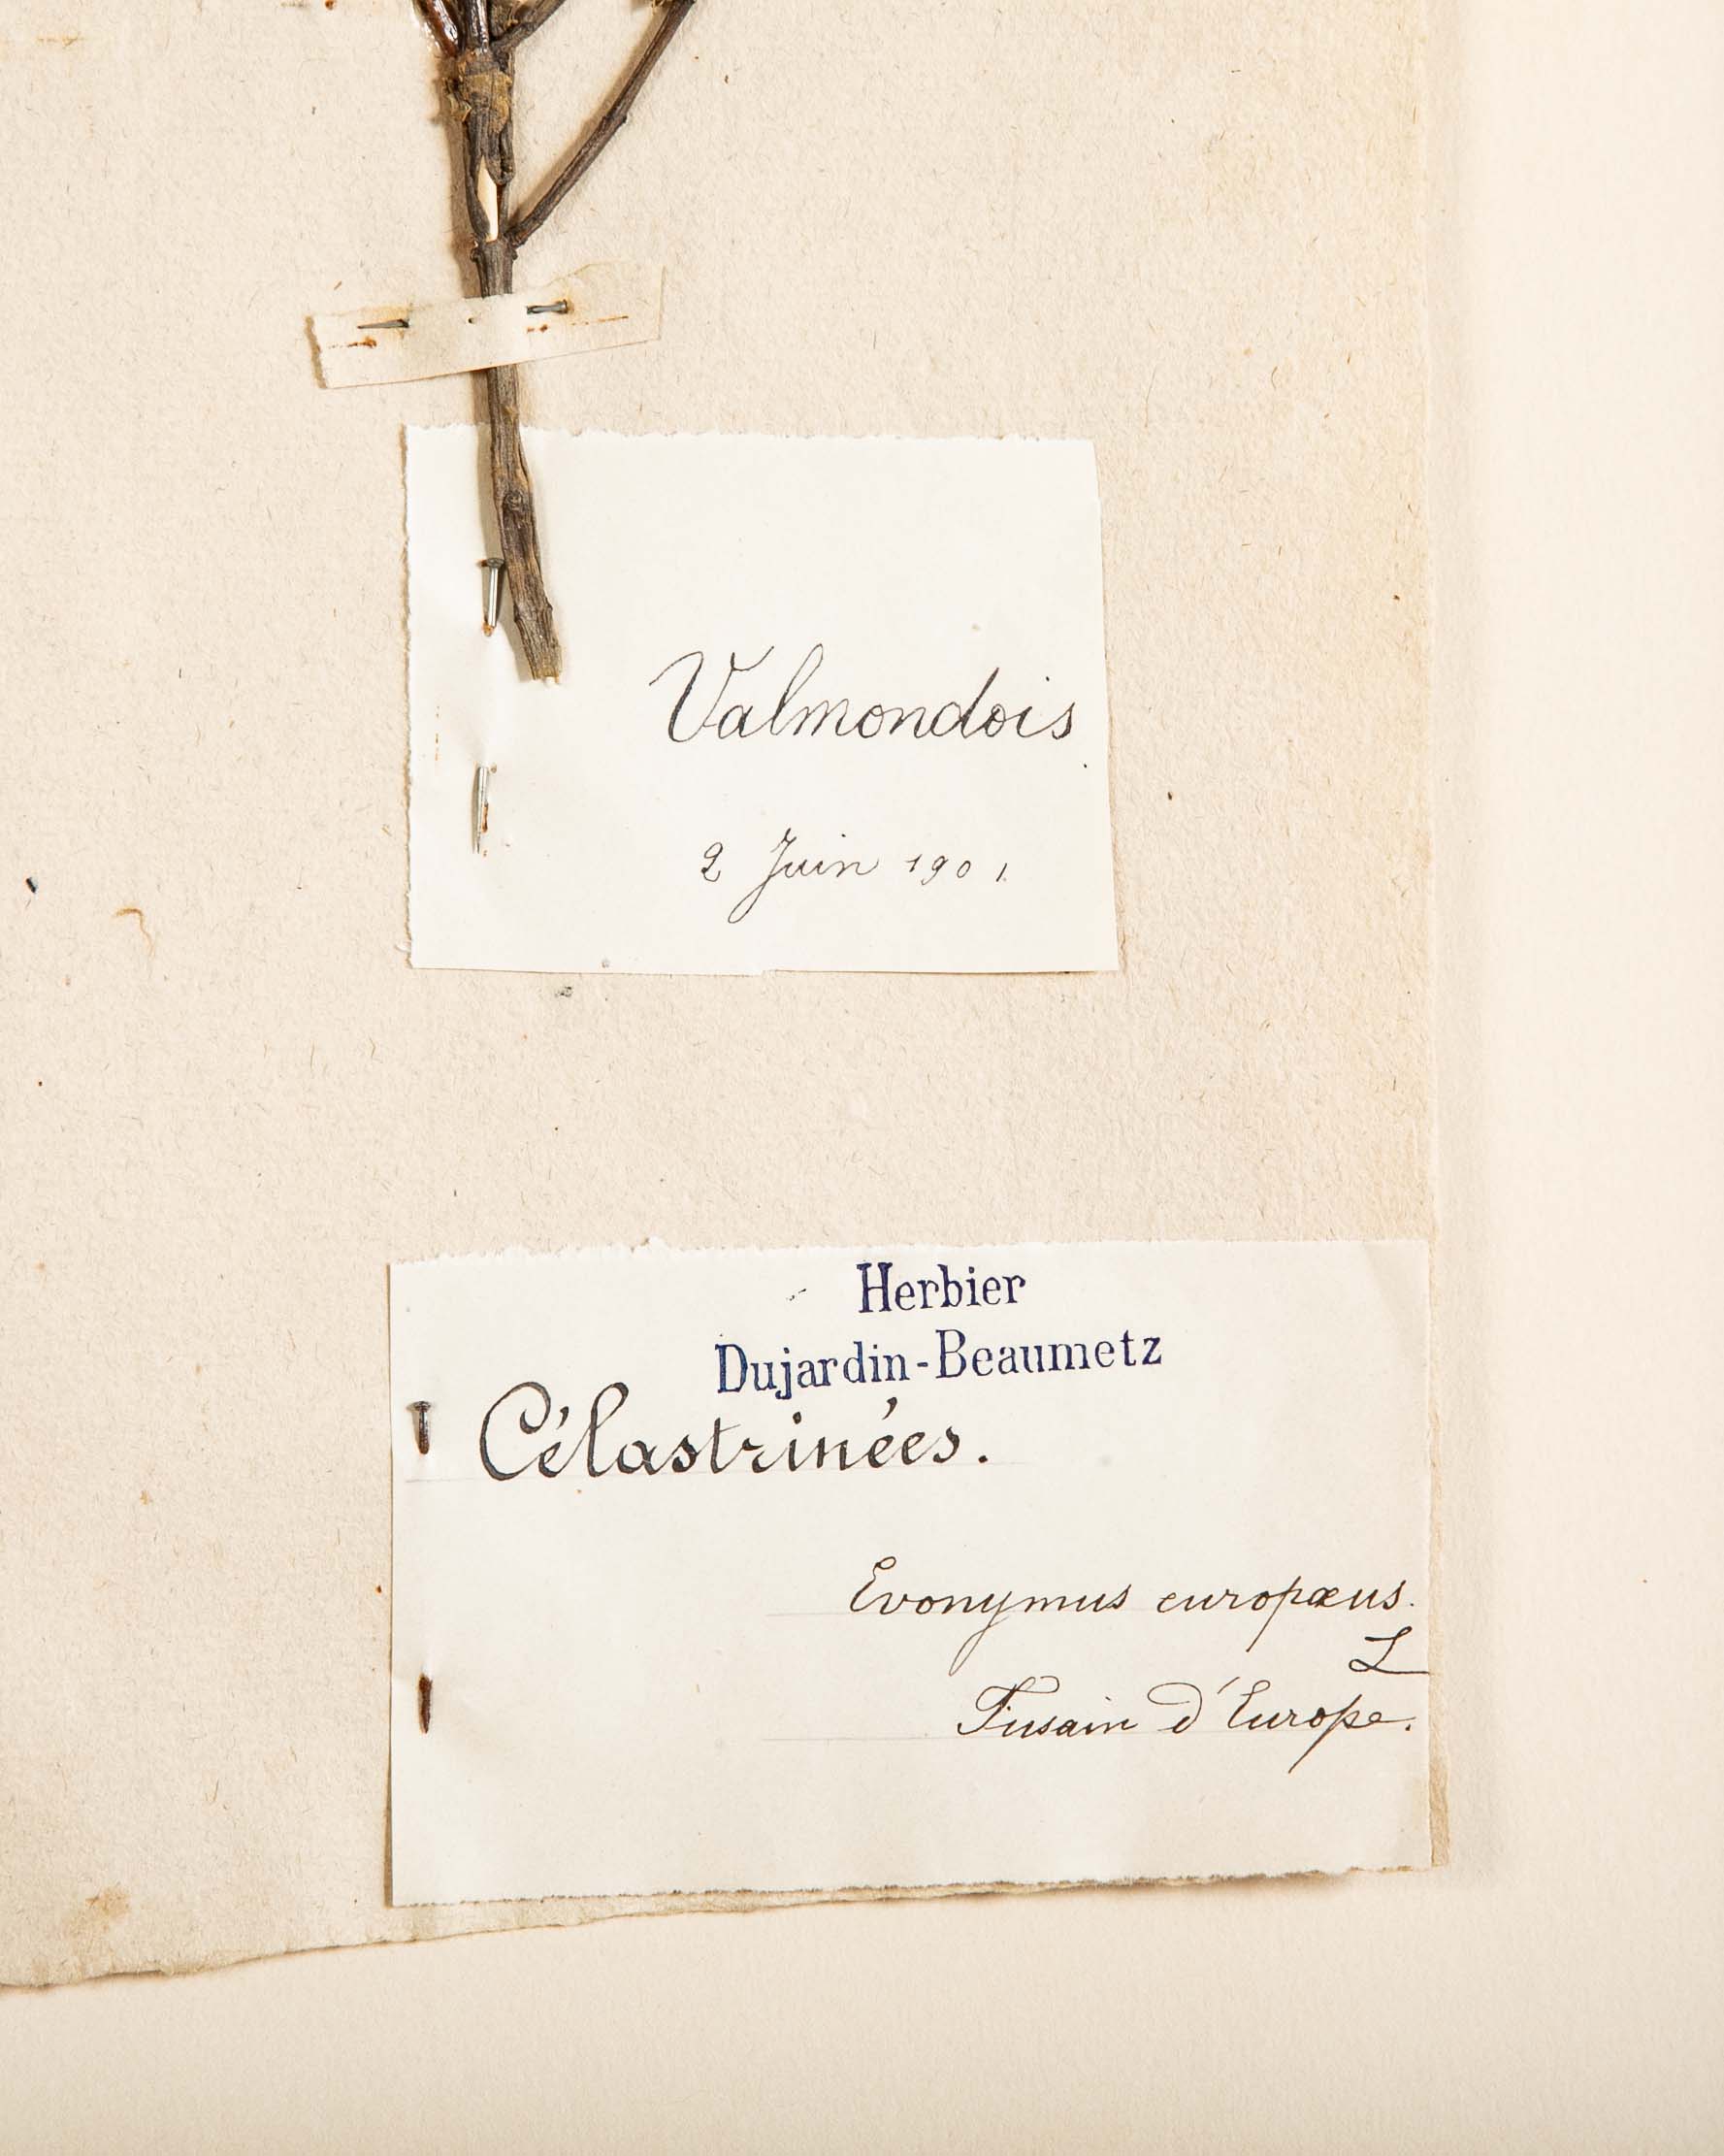 Valmondois
2 Juin 1901
Herbier
Dujardin-Beaumetz
Célastrinées.
Evonymus europæus.
L
Fusain d'Europe.